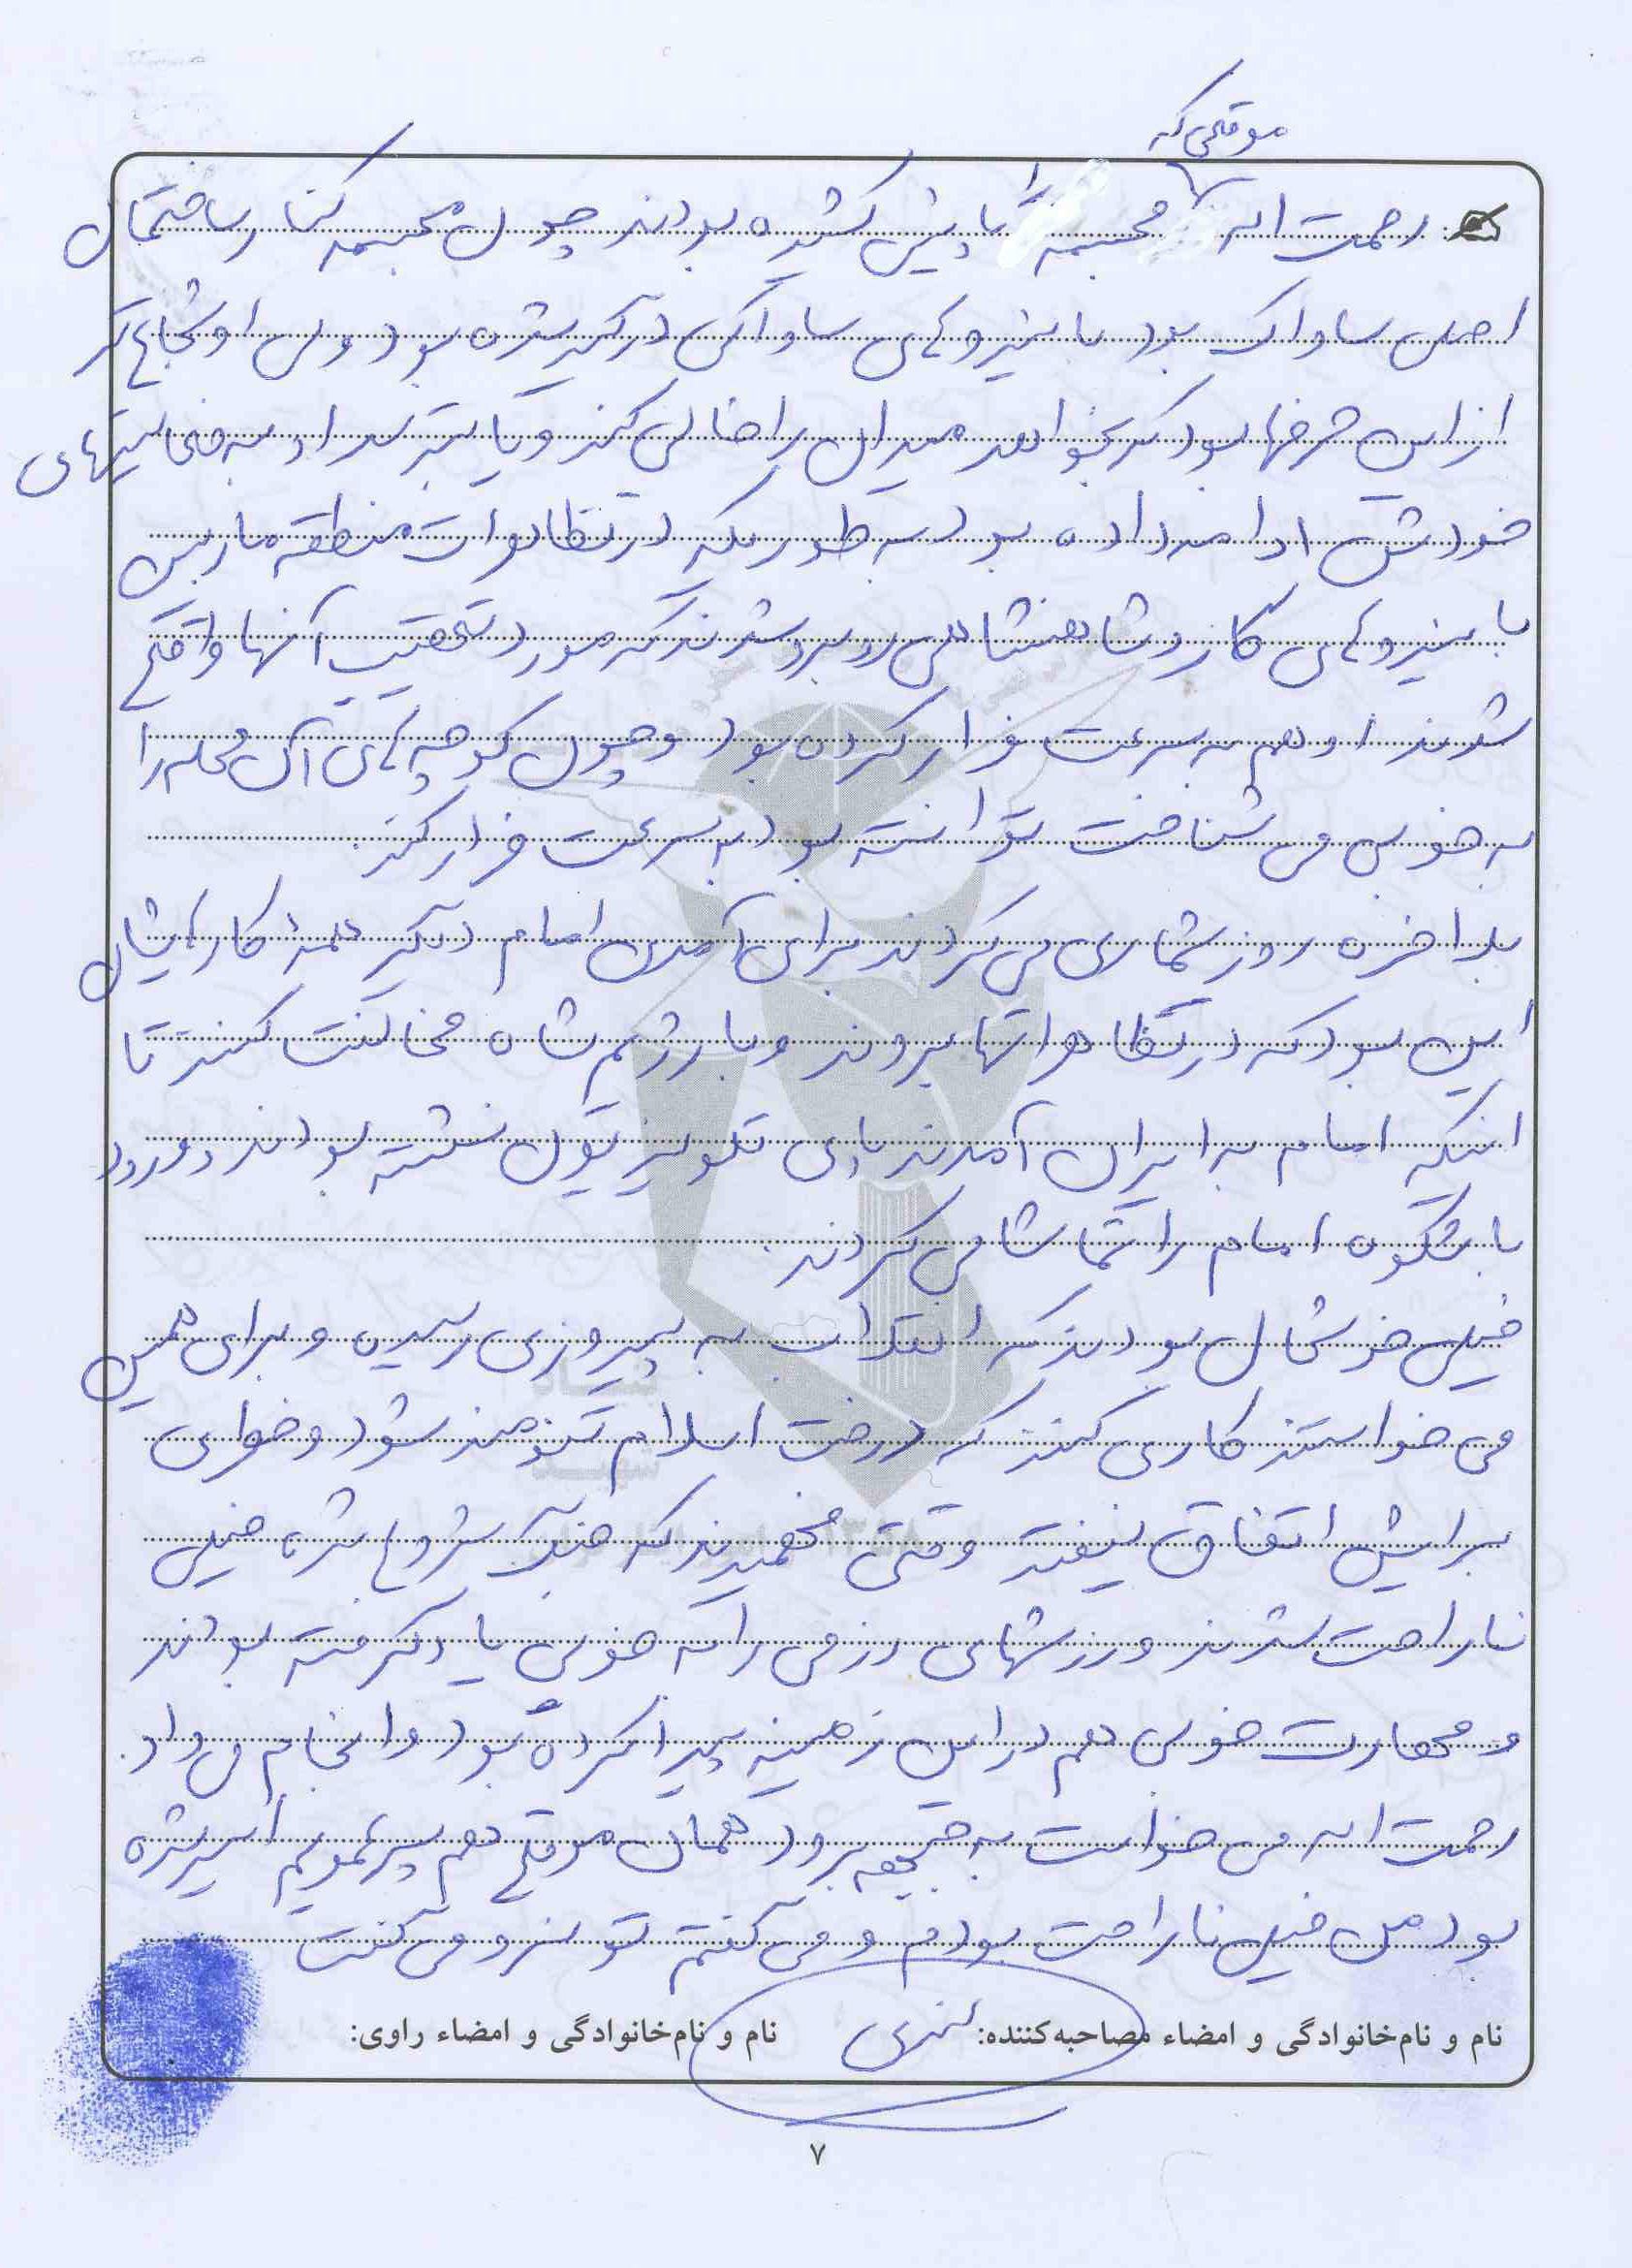 موقعی که
رحمت اله مجسمه را پایین کشیده بودند چون مجسمه کنار ساختمان
اصلی ساواک بود با نیروهای ساواکی درگیر شده بود ولی او شجاع تر
از این حرفها بود که بخواهد میدان را خالی کند و یا بترسد او به فعالیتهای
خودش ادامه داده بود به طوریکه در تظاهرات منطقه
با نیروهای گارد شاهنشاهی روبرو شدند که مورد تعقیب آنها واقع
شدند او هم به سرعت فرار کرده بود و چون کوچه های آن محله را
به خوبی می شناخت توانسته بود به سرعت فرار کند.
بلاخره روز شماری می کردند برای آمدن امام دیگر همۀ کارهایشان
این بود که در تظاهراتها بروند و با رژیم شاه مخالفت کنند تا
اینکه امام به ایران آمدند پای تلویزیون نشسته بودند و ورود
با شکوه امام را تماشا می کردند.
خیلی خوشحال بودند که انقلاب به پیروزی رسیده و برای همین
می خواستند کاری کنند که درخت اسلام تنومند شود و خطری
برایش اتفاق نیفتد وقتی فهمیدند که جنگ شروع شده خیلی
ناراحت شدند ورزشهای رزمی را به خوبی یاد گرفته بودند
و مهارت خوبی هم در این زمینه پیدا کرده بود و انجام می داد.
رحمت اله می خواست به جبهه برود همان موقع هم پسر عمویم اسیر شده
بود من خیلی ناراحت بودم و می گفتم تو نرو می گفت
نام و نام‌خانوادگی و امضاء مصاحبه‌کننده:
نام و نام‌خانوادگی و امضاء راوی:
۷